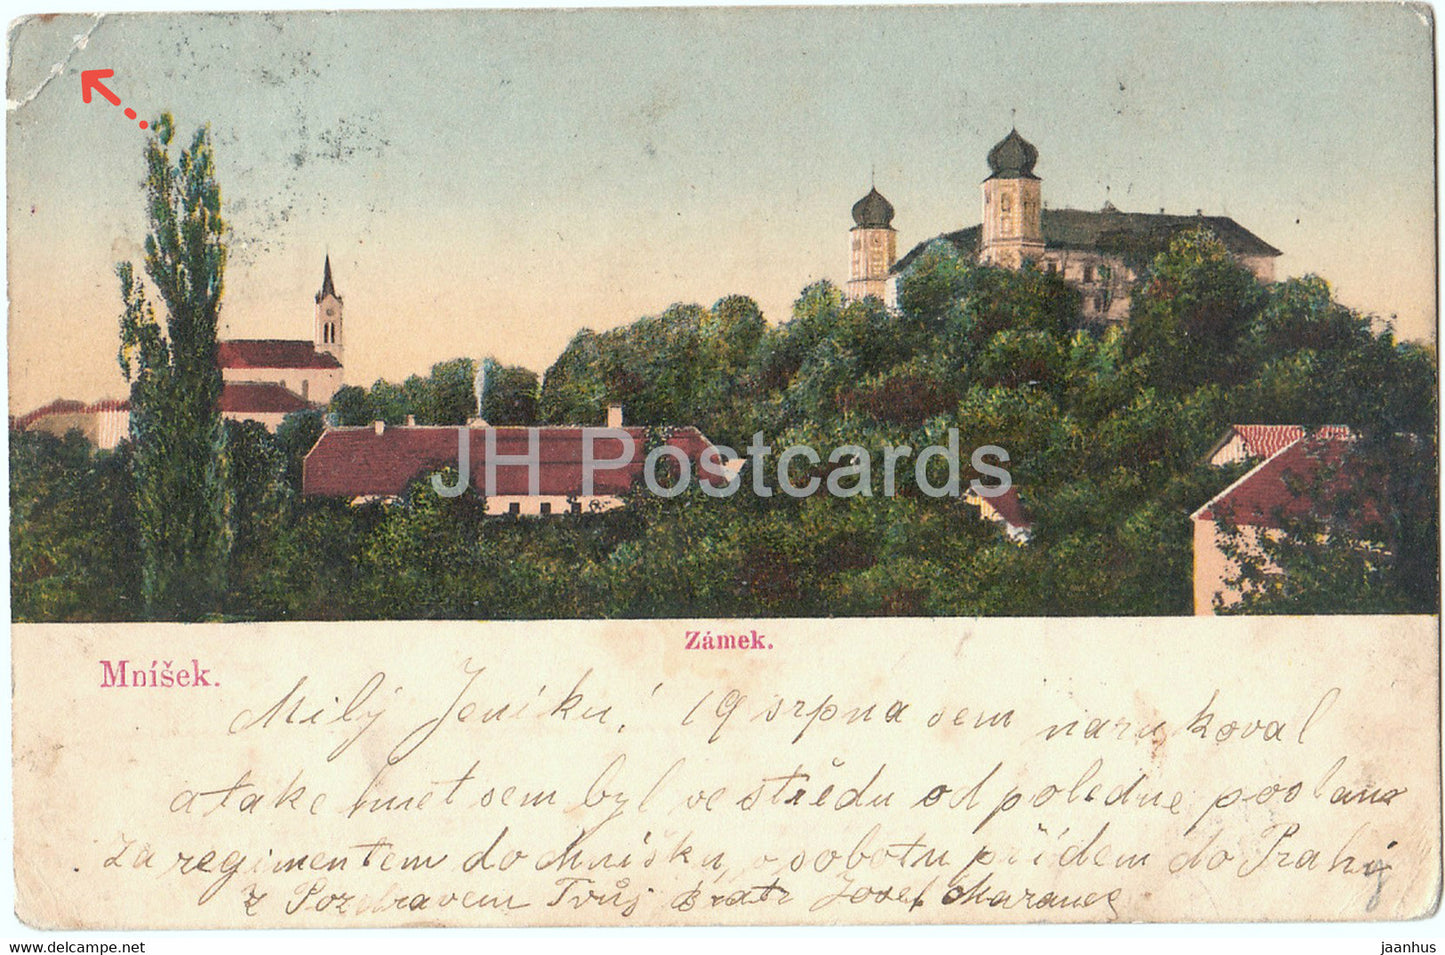 JH Postcards
Zámek.
Mníšek.
Milý Jeníku! 19 srpna sem narukoval
a take hnet sem byl ve středu odpoledne poslan
za regimentem do Mníšku, v sobotu přídem do Prahy
z Pozdravem Tvůj Bratr Josef
jaanhus